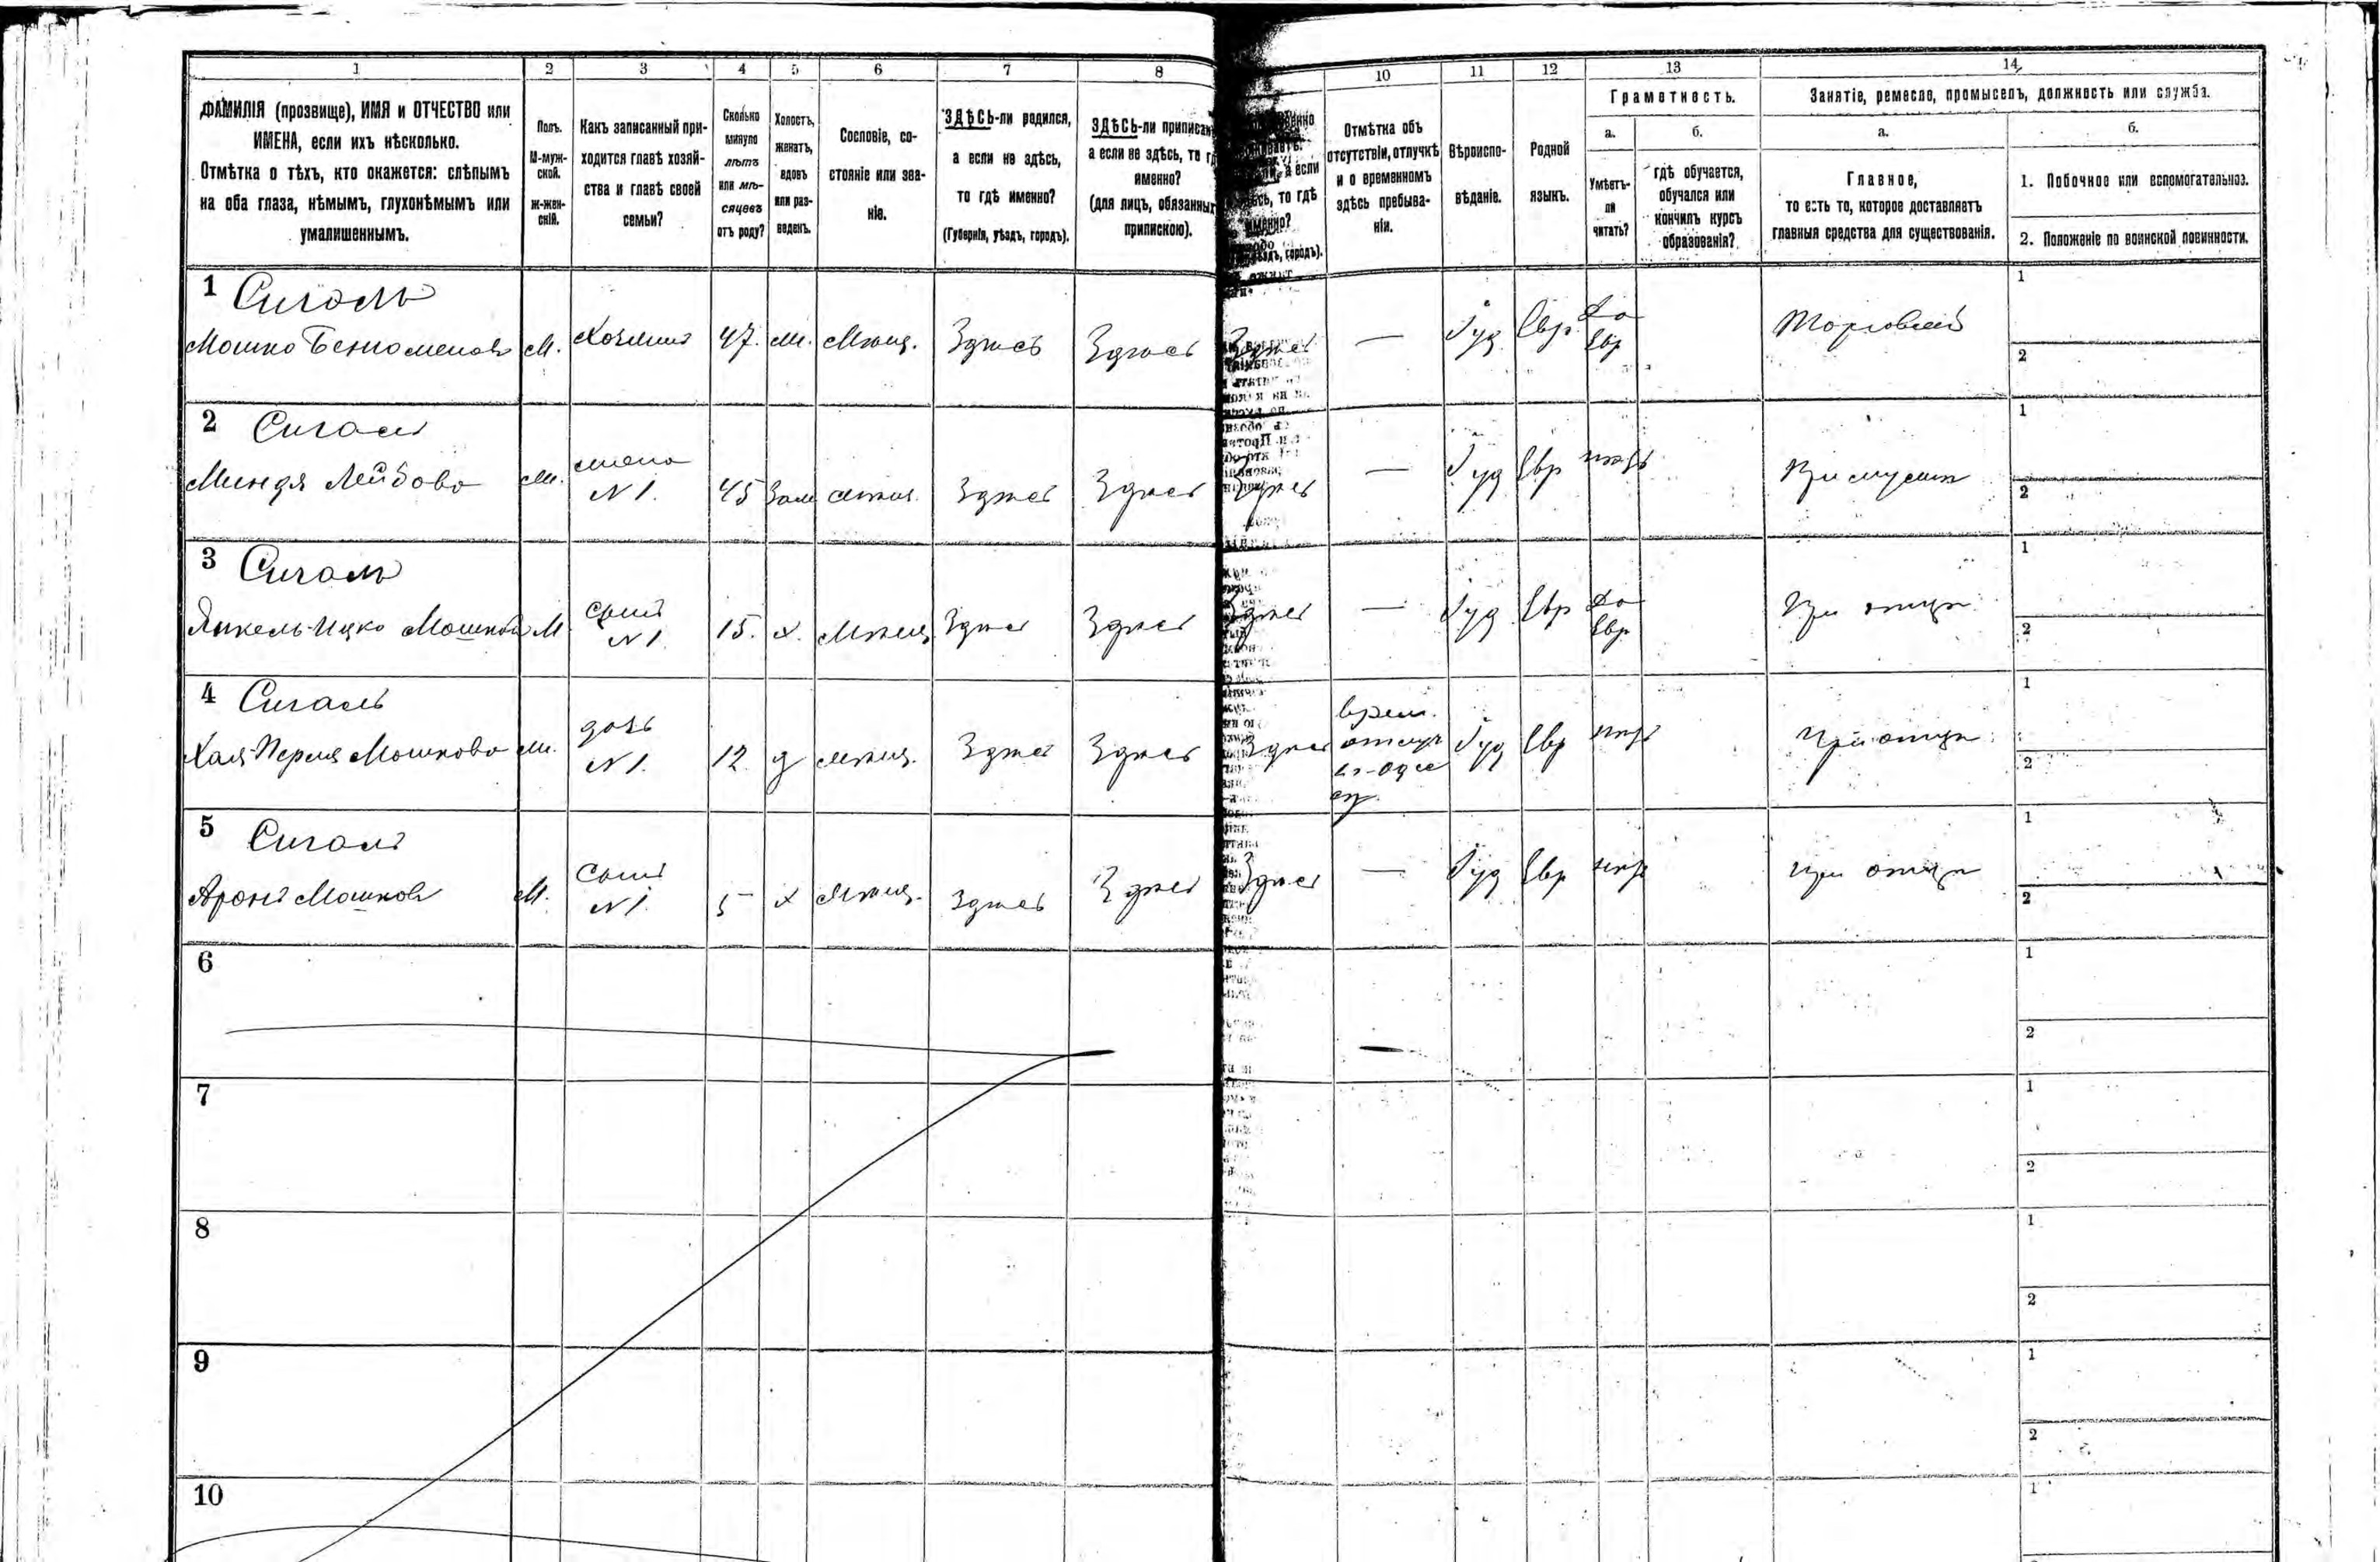 1 2 3 4 5 6 7 8 10 11 12 13 14
ФАМИЛІЯ (прозвище), ИМЯ и ОТЧЕСТВО или
ИМЕНА, если ихъ нѣсколько.
Отмѣтка о тѣхъ, кто окажется: слѣпымъ
на оба глаза, нѣмымъ, глухонѣмымъ или
умалишеннымъ.
Полъ.
М-муж-
ской.
Ж-жен-
скій.
Какъ записанный при-
ходится главѣ хозяй-
ства и главѣ своей
семьи?
Сколько
минуло
лѣтъ
или мѣ-
сяцевъ
отъ роду?
Холостъ,
женатъ,
вдовъ
или раз-
веденъ.
Сословіе, со-
стояніе или зва-
ніе.
ЗДѢСЬ-ли родился,
а если не здѣсь,
то гдѣ именно?
(Губернія, уѣздъ, городъ).
ЗДѢСЬ-ли приписан
а если не здѣсь, то г
именно?
(для лицъ, обязанных
припискою).
а если
то гдѣ
именно?
городъ).
Отмѣтка объ
отсутствіи, отлучкѣ
и о временномъ
здѣсь пребыва-
ніи.
Вѣроиспо-
вѣданіе.
Родной
языкъ.
Грамотность.
а.
Умѣетъ-
ли
читать?
б.
гдѣ обучается,
обучался или
кончилъ курсъ
образованія?
Занятіе, ремесло, промыселъ, должность или служба.
а.
Главное,
то есть то, которое доставляетъ
главныя средства для существованія.
б.
1. Побочное или вспомогательное.
2. Положеніе по воинской повинности.
1 Сигаль
Мошко М. Хозяинъ 47. Мѣщ. Здѣсь Здѣсь Здѣсь — Іуд Евр. Да Евр Торговлей 1 2
2 Сигаль
Миндя Лейбова жена N 1. 45 Зам мѣщ. Здѣсь Здѣсь Здѣсь — Іуд Евр нѣтъ При мужѣ 1 2
3 Сигаль
Янкель-Ицко Мошковъ М. сынъ N 1. 15. х. Мѣщ. Здѣсь Здѣсь Здѣсь — Іуд Евр Да Евр При отцѣ 1 2
4 Сигаль
Хая-Перля Мошкова дочь N 1. 12. д мѣщ. Здѣсь Здѣсь Здѣсь врем. Іуд Евр нѣтъ При отцѣ 1 2
5 Сигаль
Аронъ Мошковъ М. Сынъ N 1. 5 х Мѣщ. Здѣсь Здѣсь Здѣсь — Іуд Евр нѣтъ при отцѣ 1 2
6 1 2
7 1 2
8 1 2
9 1 2
10 1